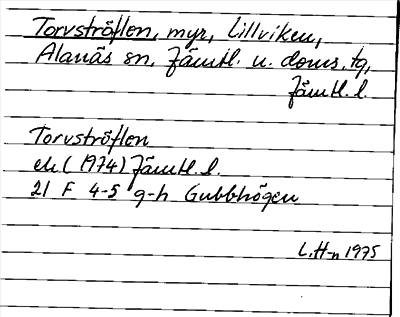 Torvströflon, myr, Lillviken,
Alanäs sn, Jämtl. n. doms. tg,
Jämtl. l.
Torvströflon
ek (1974) Jämtl. l.
21 F 4-5 g-h Gubbhögen
L.H-n 1975